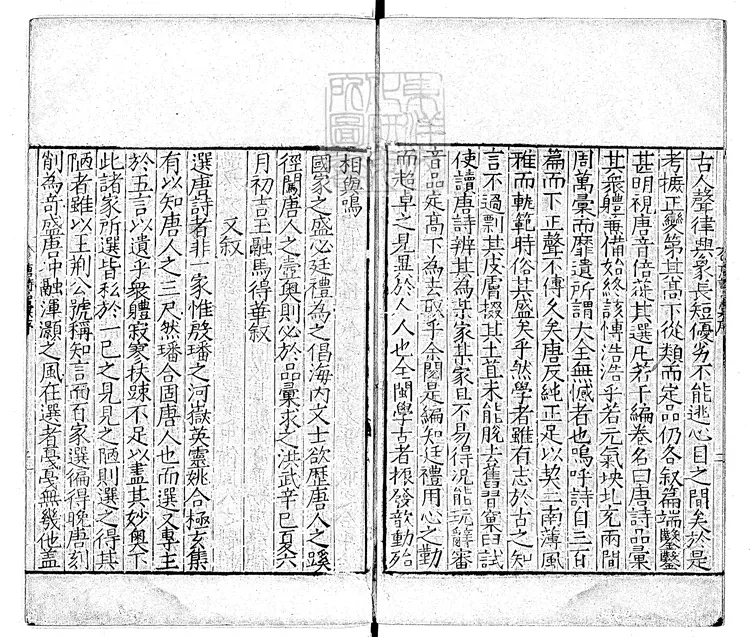 古人聲律興象長短優劣不能逃心目之間矣於是
考摭正變第其高下從類而定品仍各敘篇端鑿鑿
甚明視唐音倍蓰其選凡若干編卷名曰唐詩品彙
其衆體兼備始終該博浩浩乎若元氣坱圠充兩間
周萬彙而靡遺所謂大全無憾者也嗚呼詩自三百
篇而下正聲不傳久矣唐反純正足以契二南薄風
雅而軌範時俗其盛矣乎然學者雖有志於古之知
言不過剽其皮膚掇其土苴未能脫去舊習窠臼試
使讀唐詩辨其為某家某家且不易得況能玩辭審
音品定高下為去取乎余閱是編知廷禮用心之勤
而超卓之見異於人人也全閩學古者振發歆動殆
相與鳴
國家之盛必廷禮為之倡海內文士欲歷唐人之蹊
徑闖唐人之壼奧則必於品彙求之洪武辛巳夏六
月初吉王融馬得華敘
又敘
選唐詩者非一家惟殷璠之河嶽英靈姚合極玄集
有以知唐人之三尺然璠合固唐人也而選又專主
於五言以遺乎衆體寂寥扶踈不足以盡其妙奧下
此諸家所選皆私於一己之見見之陋則選之得其
陋者雖以王荊公號稱知言而百家選徧得晚唐刻
削為奇盛唐沖融渾灝之風在選者戞戞無幾他蓋